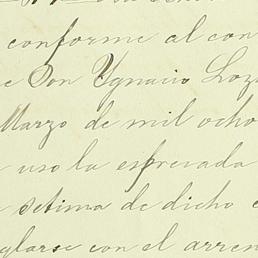 conforme al con
e Don Ygnacio Loz
Marzo de mil ocho
uso la espresada
setima de dicho
glarse con el arren